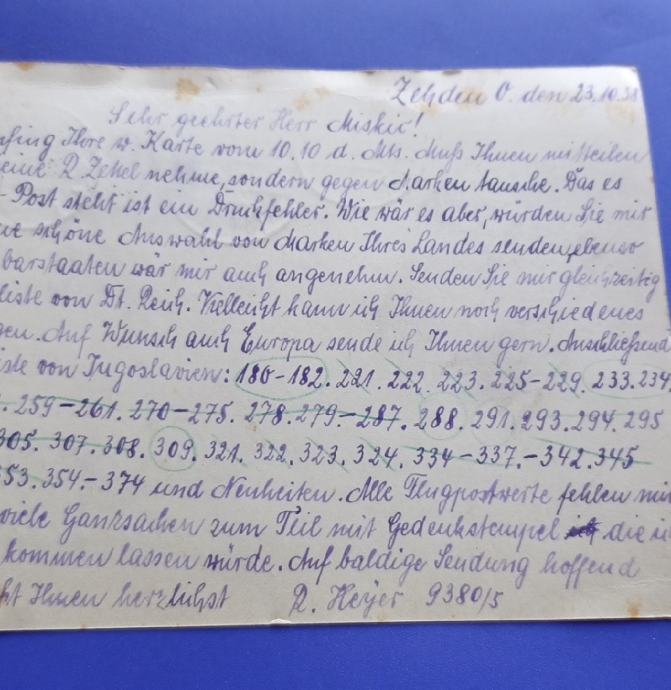 Zehden O. den 23.10.38
Sehr geehrter Herr Miskić!
pfing Ihre w. Karte vom 10.10 d. Mts. Muß Ihnen mitteilen
eine R Zettel nehme, sondern gegen Marken tausche. Das es
- Post steht ist ein Druckfehler. Wie wär es aber, würden Sie mir
ne schöne Auswahl von Marken Ihres Landes senden, ebenso
barstaaten wär mir auch angenehm. Senden Sie mir gleichzeitig
liste von Dt. Reich. Vielleicht kann ich Ihnen noch verschiedenes
gen. Auf Wunsch auch Europa sende ich Ihnen gern. Anschließend
iste von Jugoslavien: 180-182. 221. 222. 223. 225-229. 233. 234
. 259-261. 270-275. 278. 279.-287. 288. 291. 293. 294. 295
305. 307. 308. 309. 321. 322. 323. 324. 334-337.-342. 345
353. 354.-374 und Neuheiten. Alle Flugpostwerte fehlen mir
viele Ganzsachen zum Teil mit Gedenkstempel die
kommen lassen würde. Auf baldige Sendung hoffend
ßt Ihnen herzlichst R. Heyer 9380/5